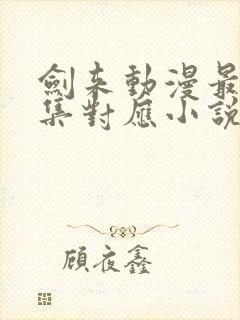 劍来動漫最
集對應小說
顧夜鑫